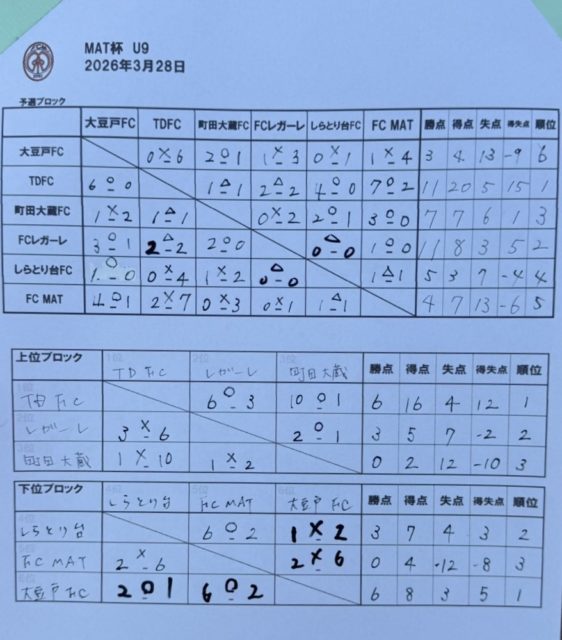 MAT杯 U9
2026年3月28日
予選ブロック
大豆戸FC TDFC 町田大蔵FC FCレガーレ しらとり台FC FC MAT 勝点 得点 失点 得失点 順位
大豆戸FC 0×6 2○1 1×3 0×1 1×4 3 4 13 -9 6
TDFC 6○0 1△1 2△2 4○0 7○2 11 20 5 15 1
町田大蔵FC 1×2 1△1 0×2 2○1 3○0 7 7 6 1 3
FCレガーレ 3○1 2△2 2○0 0△0 1○0 11 8 3 5 2
しらとり台FC 1○0 0×4 1×2 0△0 1△1 5 3 7 -4 4
FC MAT 4○1 2×7 0×3 0×1 1△1 4 7 13 -6 5
上位ブロック 1位 TD FC 2位 レガーレ 3位 町田大蔵 勝点 得点 失点 得失点 順位
1位 TD FC 6○3 10○1 6 16 4 12 1
2位 レガーレ 3×6 2○1 3 5 7 -2 2
3位 町田大蔵 1×10 1×2 0 2 12 -10 3
下位ブロック 4位 しらとり台 5位 FC MAT 6位 大豆戸FC 勝点 得点 失点 得失点 順位
4位 しらとり台 6○2 1×2 3 7 4 3 2
5位 FC MAT 2×6 2×6 0 4 12 -8 3
6位 大豆戸FC 2○1 6○2 6 8 3 5 1